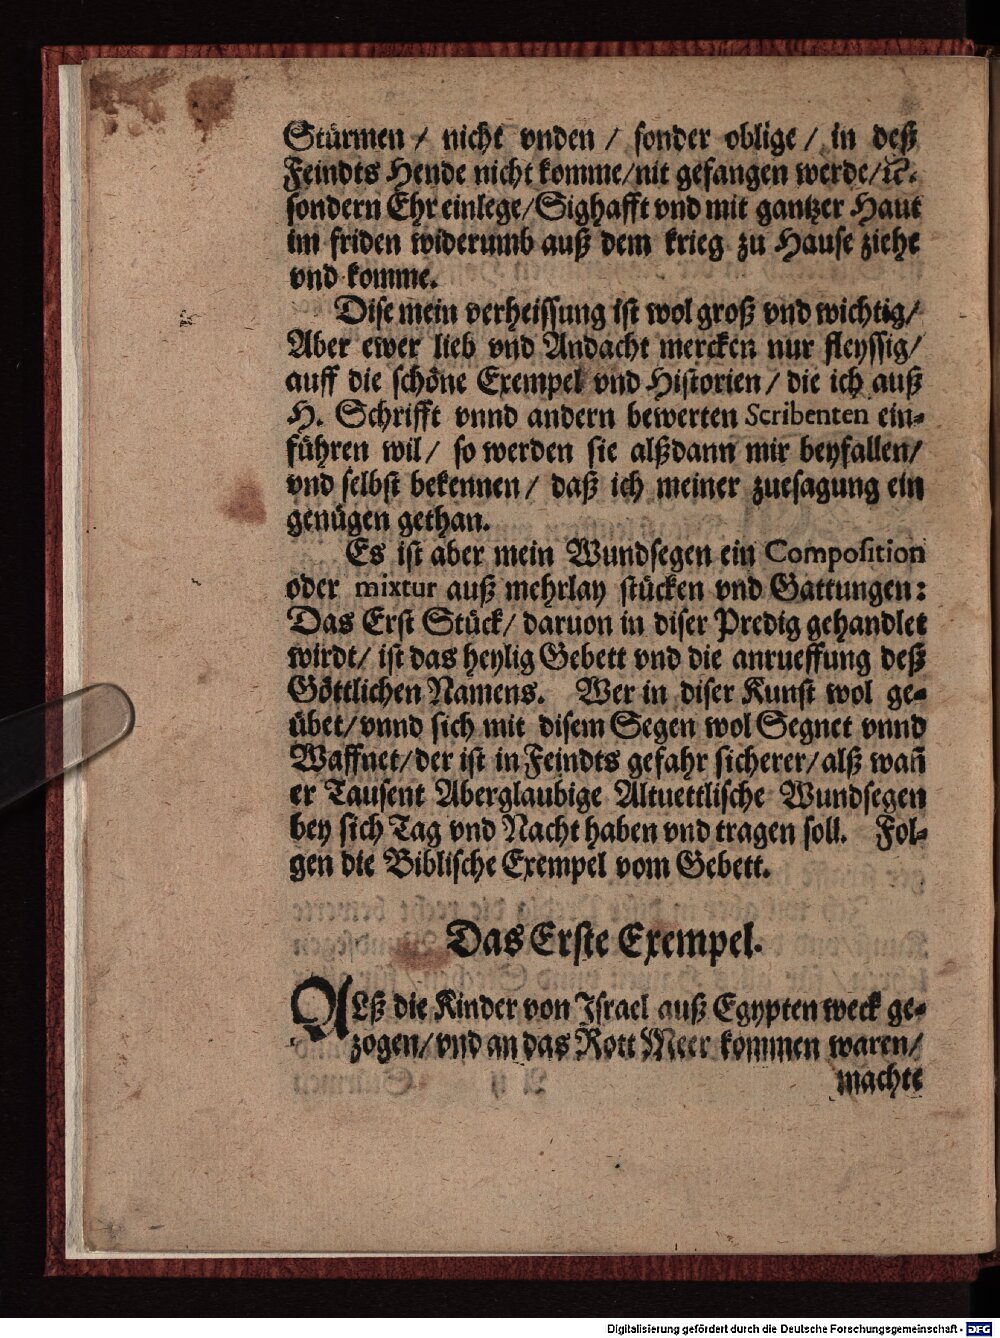 Stürmen / nicht vnden / sonder oblige / in deß
Feindts Hende nicht komme/nit gefangen werde/ꝛc.
sondern Ehr einlege/Sighafft vnd mit gantzer Haut
im friden widerumb auß dem krieg zu Hause ziehe
vnd komme.
Dise mein verheissung ist wol groß vnd wichtig/
Aber ewer lieb vnd Andacht mercken nur fleyssig/
auff die schöne Exempel vnd Historien / die ich auß
H. Schrifft vnnd andern bewerten Scribenten ein-
führen wil / so werden sie alßdann mir beyfallen/
vnd selbst bekennen / daß ich meiner zuesagung ein
genügen gethan.
Es ist aber mein Wundsegen ein Composition
oder mixtur auß mehrlay stücken vnd Gattungen:
Das Erst Stück/ daruon in diser Predig gehandlet
wirdt/ ist das heylig Gebett vnd die anrueffung deß
Göttlichen Namens. Wer in diser Kunst wol ge-
übet/vnnd sich mit disem Segen wol Segnet vnnd
Waffnet/der ist in Feindts gefahr sicherer/alß wañ
er Tausent Aberglaubige Altuettlische Wundsegen
bey sich Tag vnd Nacht haben vnd tragen soll. Fol-
gen die Biblische Exempel vom Gebett.
Das Erste Exempel.
ALß die Kinder von Israel auß Egypten weck ge-
zogen/vnd an das Rott Meer kommen waren/
machte
Digitalisierung gefördert durch die Deutsche Forschungsgemeinschaft - DFG